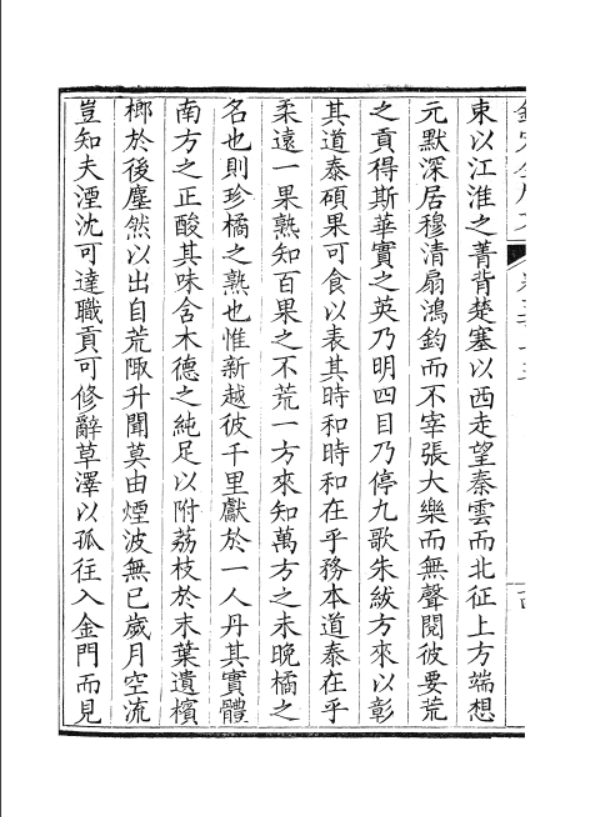 束以江淮之菁背楚塞以西走望秦雲而北征上方端想
元默深居穆清扇鴻鈞而不宰張大樂而無聲閱彼要荒
之貢得斯華實之英乃明四目乃停九歌朱紱方來以彰
其道泰碩果可食以表其時和時和在乎務本道泰在乎
柔遠一果熟知百果之不荒一方來知萬方之未晚橘之
名也則珍橘之熟也惟新越彼千里獻於一人丹其實體
南方之正酸其味含木德之純足以附荔枝於末葉遺檳
榔於後塵然以出自荒陬升聞莫由煙波無已歲月空流
豈知夫湮沈可達職貢可修辭草澤以孤往入金門而見